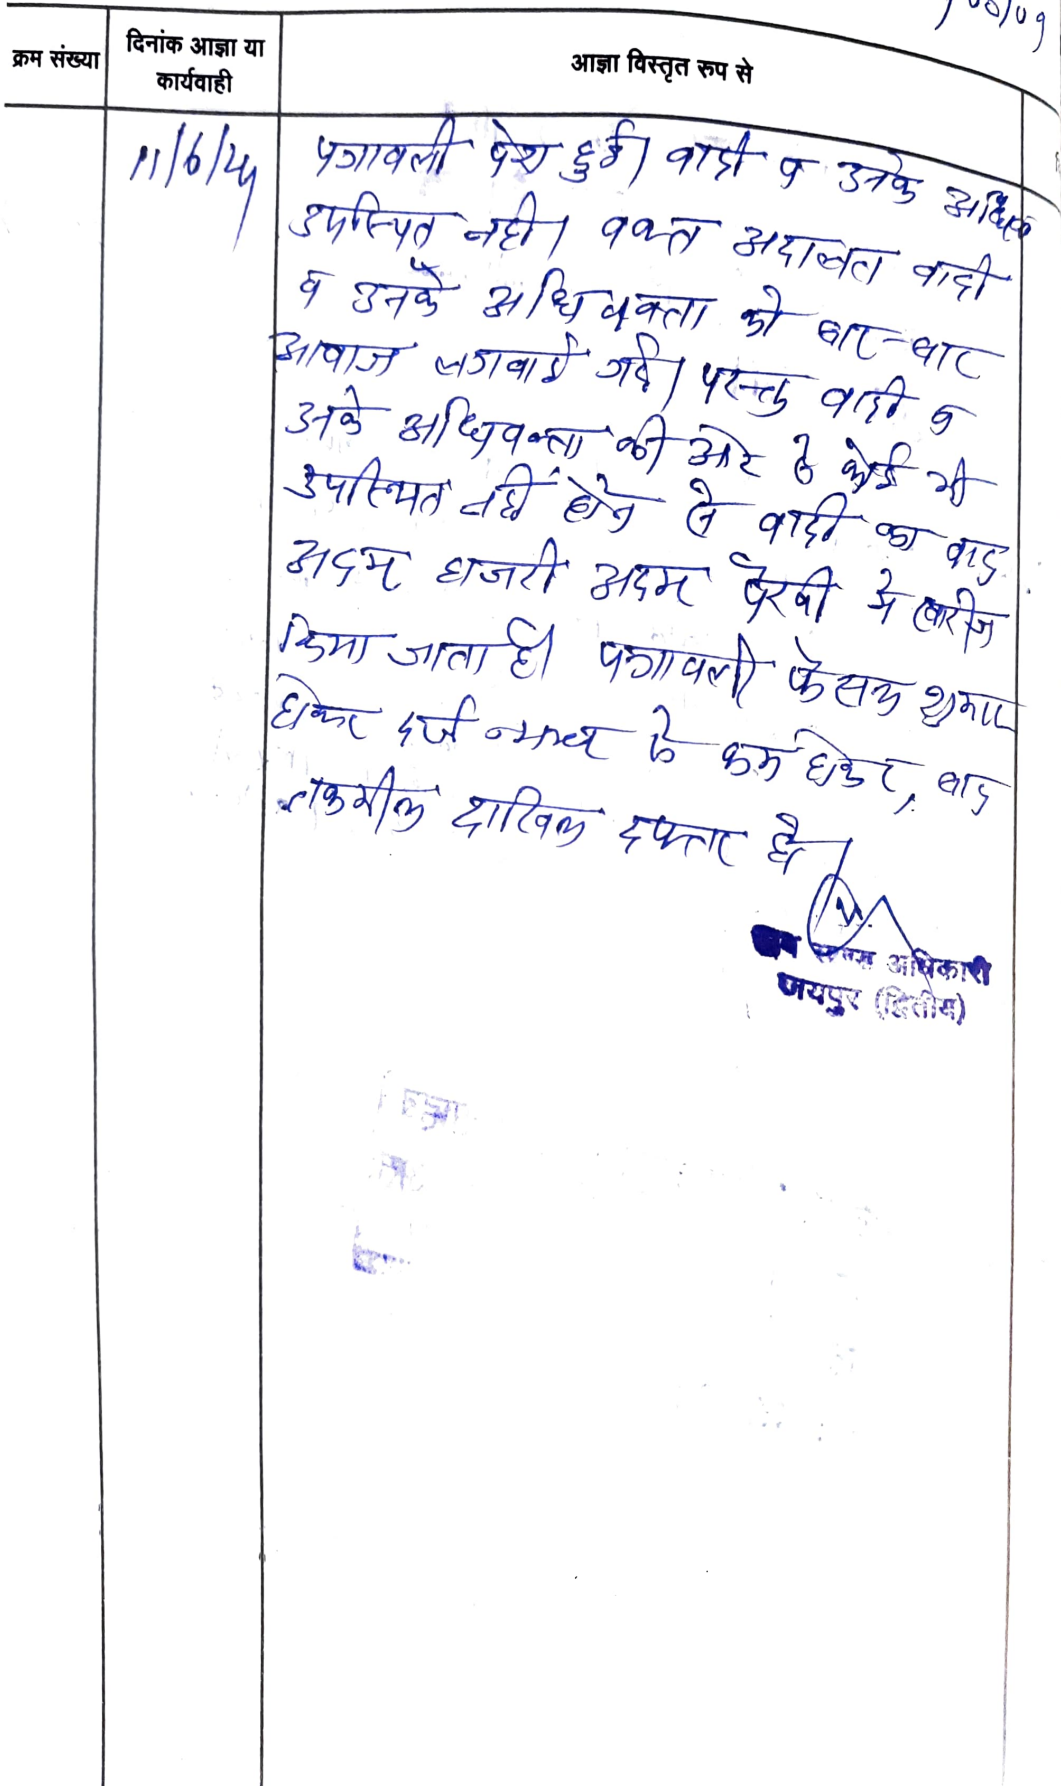 क्रम संख्या
दिनांक आज्ञा या
कार्यवाही
आज्ञा विस्तृत रूप से
11/6/24
पत्रावली पेश हुई। वादी व उनके अधिवक्ता
उपस्थित नहीं। वक्त अदालत वादी
व उनके अधिवक्ता को बार-बार
आवाज लगवाई गई। परन्तु वादी व
उनके अधिवक्ता की ओर से कोई भी
उपस्थित नहीं होने से वादी का वाद
अदम हाजरी अदम पैरवी में खारीज
किया जाता है। पत्रावली फैसल शुमार
होकर दर्ज नम्बर से कम होकर, बाद
तकमील दाखिल दफ्तर हो।
अधिकारी
जयपुर (द्वितीय)